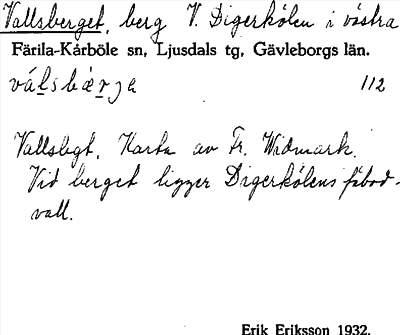 Vallsberget, berg V. Digerkölen i västra
Färila-Kårböle sn, Ljusdals tg, Gävleborgs län.
válsbæ̀rja 112
Vallsbgt. Karta av Fr. Widmark.
Vid berget ligger Digerkölens fäbod-
vall.
Erik Eriksson 1932.